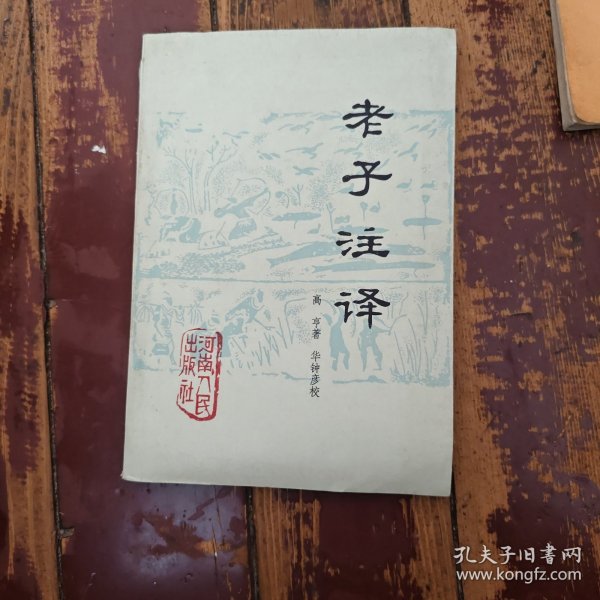 老子注译
高亨著 华钟彦校
河南人民
出版社
孔夫子旧书网
www.kongfz.com